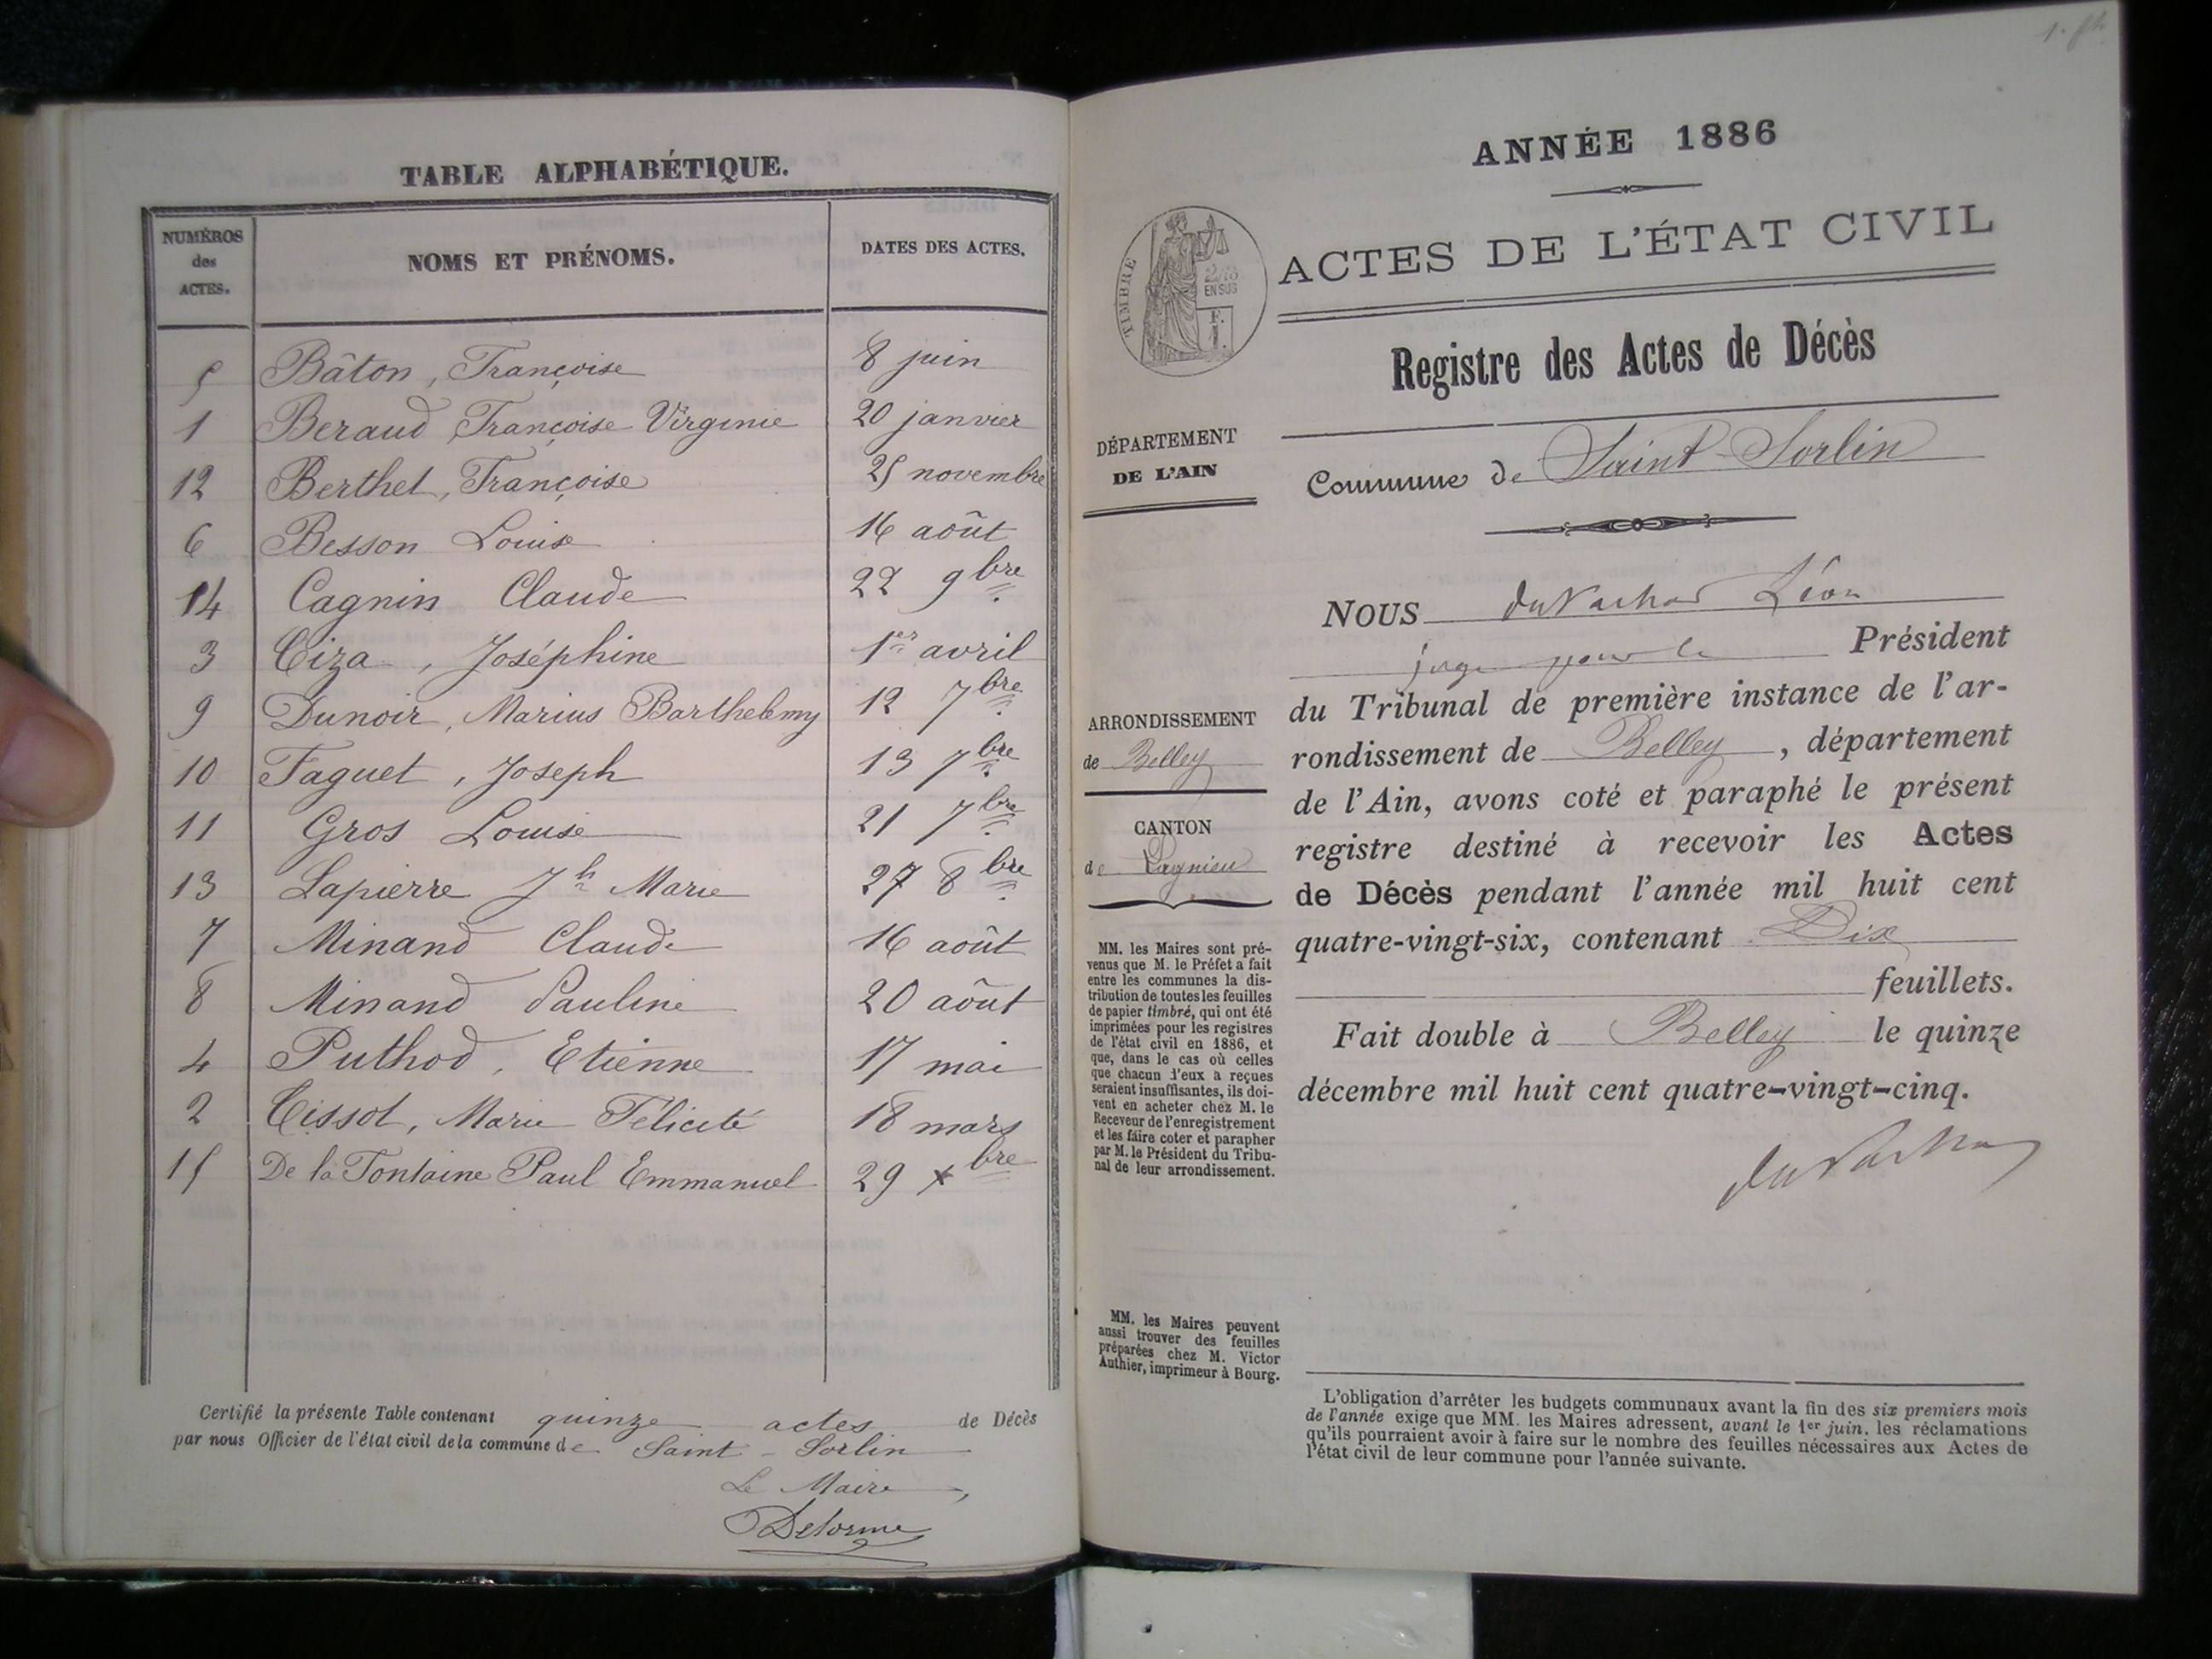 TABLE ALPHABÉTIQUE.
NUMÉROS des ACTES. NOMS ET PRÉNOMS. DATES DES ACTES.
5 Bâton, Françoise 8 juin
1 Beraud Françoise Virginie 20 janvier
12 Berthet, Françoise 25 novembre
6 Besson Louise 16 août
14 Cagnin Claude 22 9bre
3 Ciza, Joséphine 1er avril
9 Dunoir, Marius Barthelemy 12 7bre
10 Faguet, Joseph 13 7bre
11 Gros Louise 21 7bre
13 Lapierre Jh Marie 27 8bre
7 Minand Claude 16 août
8 Minand Pauline 20 août
4 Puthod, Etienne 17 mai
2 Tissot, Marie Félicité 18 mars
15 De la Fontaine Paul Emmanuel 29 xbre
Certifié la présente Table contenant quinze actes de Décès
par nous Officier de l'état civil de la commune de Saint-Sorlin
Le Maire,
Delorme
ANNÉE 1886
ACTES DE L'ÉTAT CIVIL
TIMBRE
2/10
EN SUS
Registre des Actes de Décès
DÉPARTEMENT
DE L'AIN
Commune de Saint-Sorlin
NOUS Léon
juge pour le Président
du Tribunal de première instance de l'ar-
rondissement de Belley, département
de l'Ain, avons coté et paraphé le présent
registre destiné à recevoir les Actes
de Décès pendant l'année mil huit cent
quatre-vingt-six, contenant Dix
feuillets.
Fait double à Belley le quinze
décembre mil huit cent quatre-vingt-cinq.
ARRONDISSEMENT
de Belley
CANTON
de Lagnieu
MM. les Maires sont pré-
venus que M. le Préfet a fait
entre les communes la dis-
tribution de toutes les feuilles
de papier timbré, qui ont été
imprimées pour les registres
de l'état civil en 1886, et
que, dans le cas où celles
que chacun d'eux a reçues
seraient insuffisantes, ils doi-
vent en acheter chez M. le
Receveur de l'enregistrement
et les faire coter et parapher
par M. le Président du Tribu-
nal de leur arrondissement.
MM. les Maires peuvent
aussi trouver des feuilles
préparées chez M. Victor
Authier, imprimeur à Bourg.
L'obligation d'arrêter les budgets communaux avant la fin des six premiers mois
de l'année exige que MM. les Maires adressent, avant le 1er juin, les réclamations
qu'ils pourraient avoir à faire sur le nombre des feuilles nécessaires aux Actes de
l'état civil de leur commune pour l'année suivante.